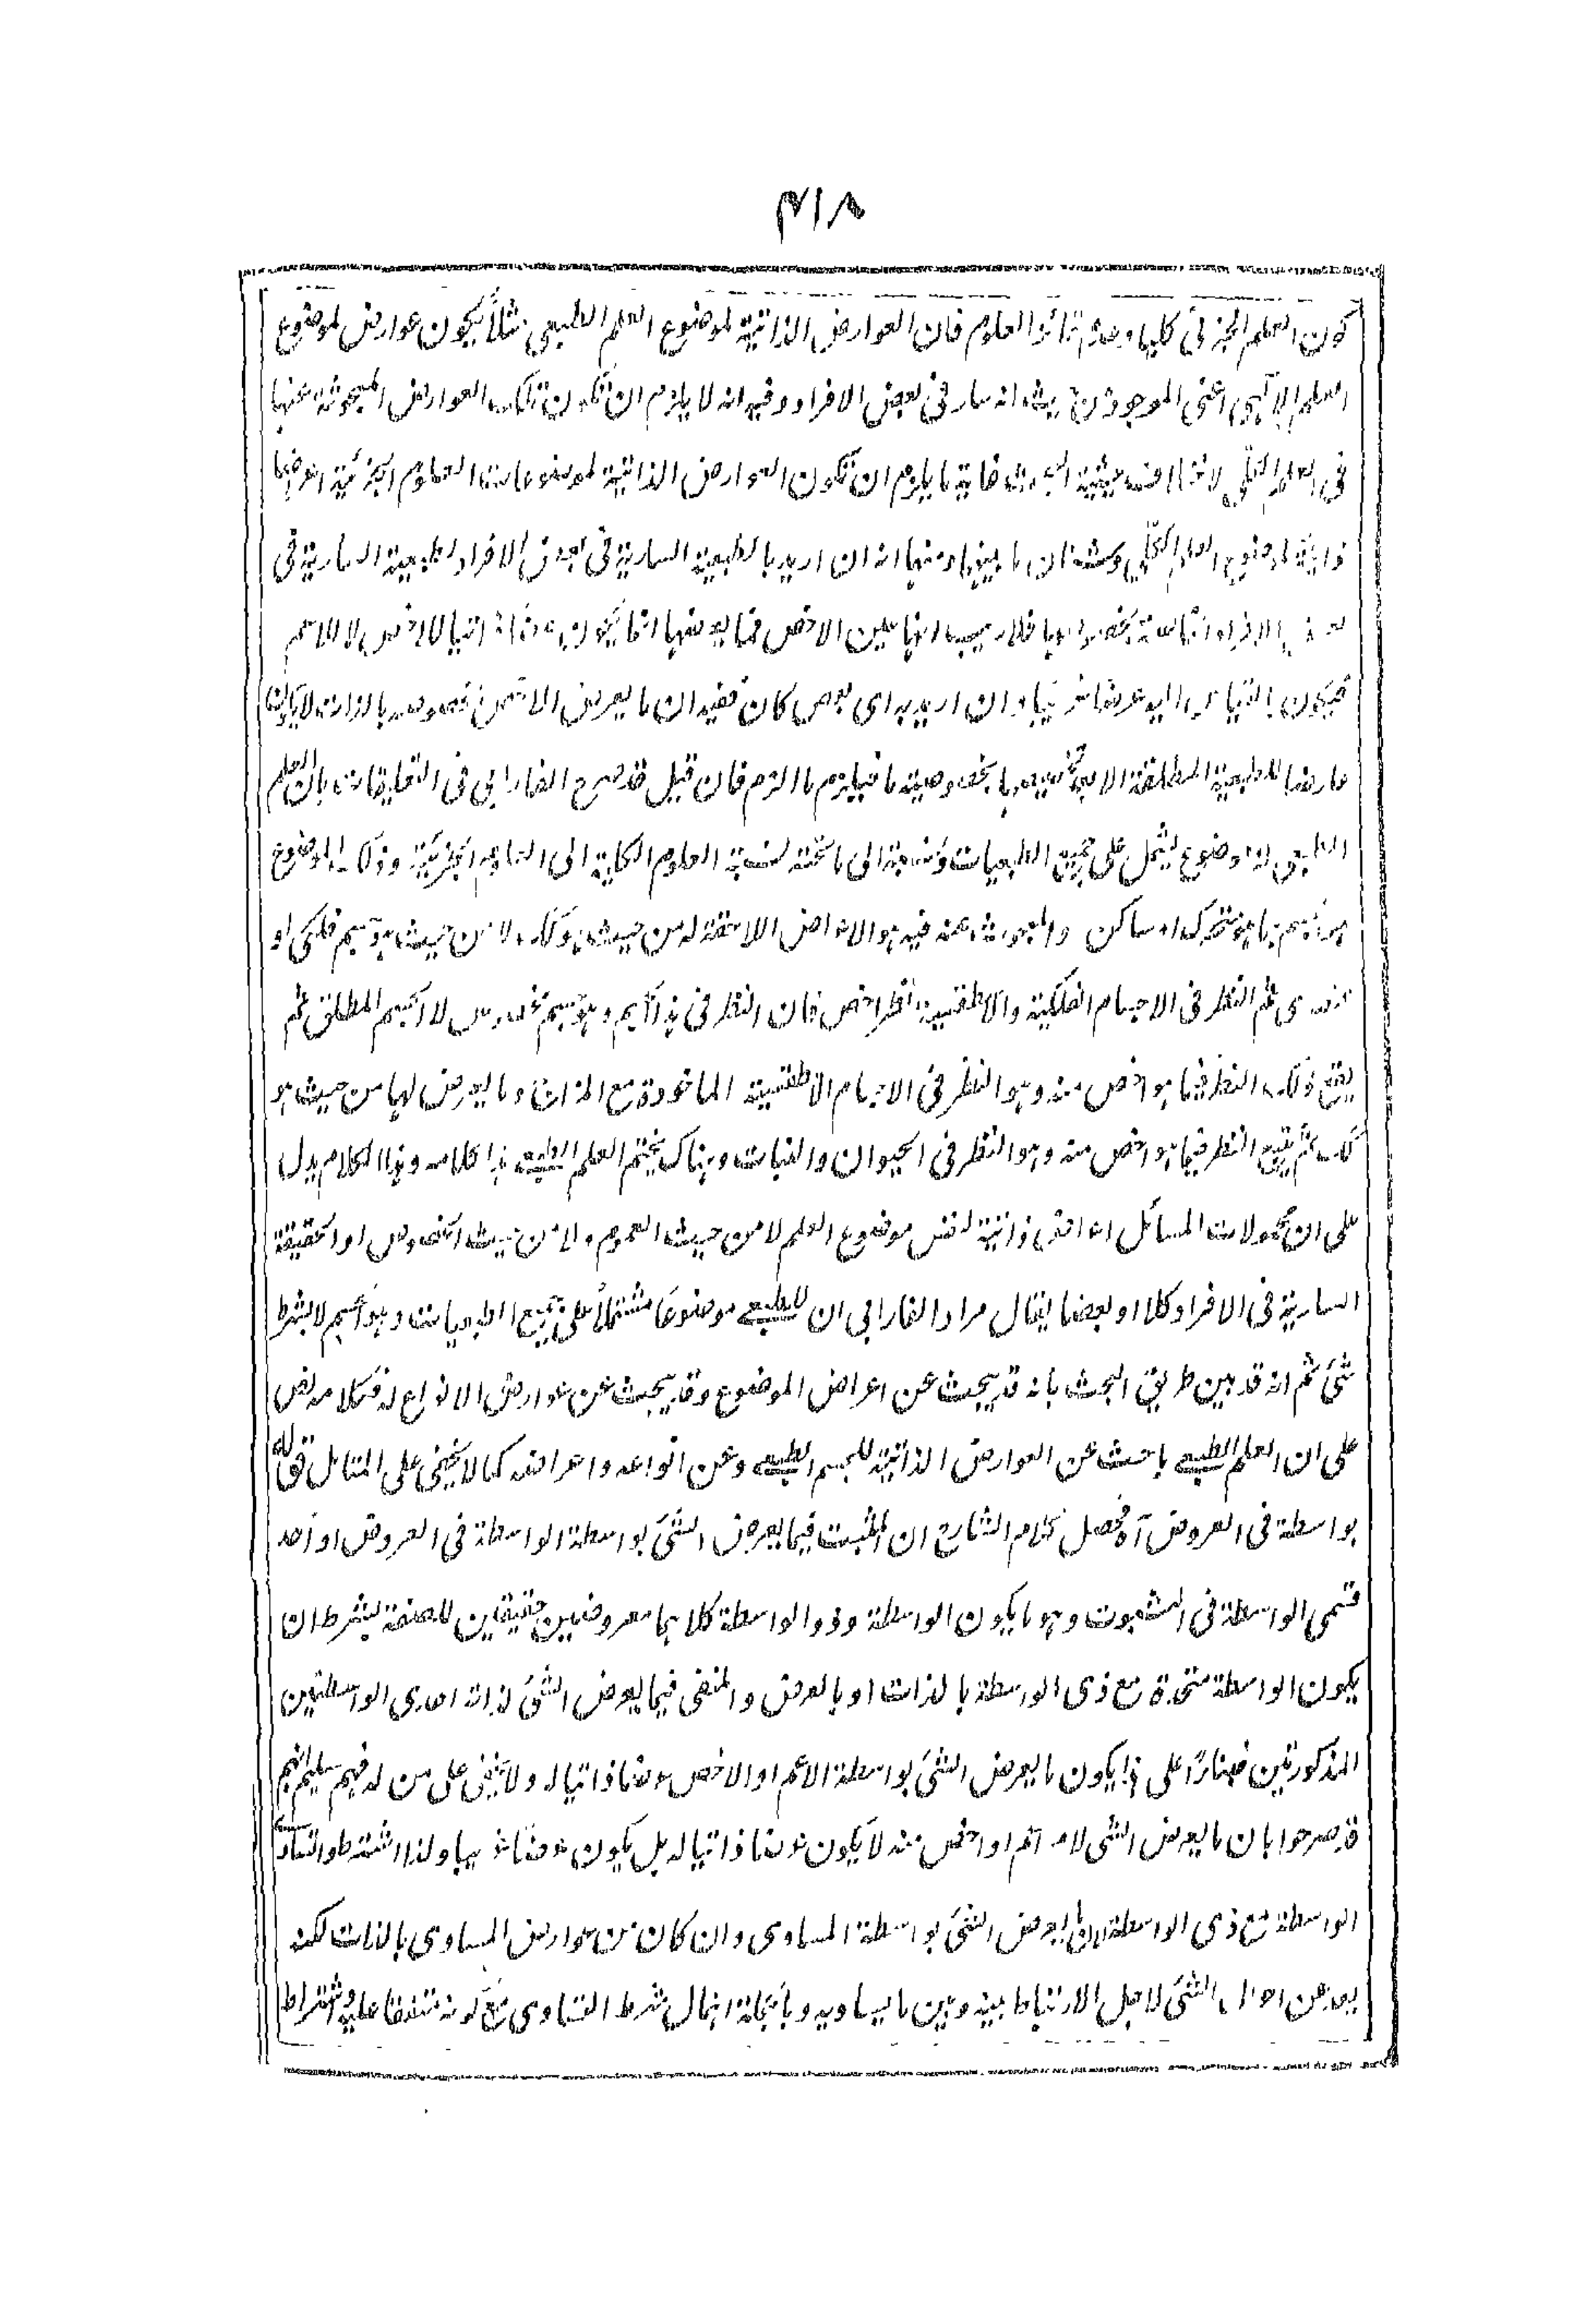 ٤١٨
كون العلم الجزئى كليا وعدم تمائز العلوم فان العوارض الذاتية لموضوع العلم الطبيعى مثلاً يكون عوارض لموضوع
العلم الالٓهى اعنى الموجود من حيث انه سار فى بعض الافراد وفيه انه لا يلزم ان تكون تلك العوارض المبحوثة عنها
فى العلم الكلى لاختلاف حيثية البحث غاية ما يلزم ان تكون العوارض الذاتية لموضوعات العلوم الجزئية اعراضا
ذاتية لموضوع العلم الكلى وشتان ما بينهما ومنها انه ان اريد بالطبيعة السارية فى بعض الافراد الطبيعة السارية فى
بعض الافراد فلا ريب انها عين الاخص فما يعرضها انما يكون عرضا ذاتيا للاخص لا للاعم
فيكون بالقياس اليه عرضا غريبا وان اريد به اى بعض كان ففيه ان ما يعرض الاخص بخصوصه بالذات لا يكون
عارضا للطبيعة المطلقة الا بخصوصية ما فيلزم ما الزم فان قيل قد صرح الفارابى فى التعليقات بان العلم
الطبعى له موضوع يشمل على جميع الطبعيات ونسبة الى ما تحته نسبة العلوم الكلية الى العلوم الجزئية وذلك الموضوع
هو الجسم بما هو متحرك او ساكن والمبحوث عنه فيه هو الاعراض اللاحقة له من حيث هو كذلك لا من حيث هو جسم فلكى او
عنصرى ثم النظر فى الاجسام الفلكية والاسطقسية نظر اخص فان النظر فى هذا جسم وهو جسم مخصوص لا الجسم المطلق ثم
يتبع ذلك النظر فيما هو اخص منه وهو النظر فى الاجسام الاسطقسية الماخوذة مع المزاج وما يعرض لها من حيث هو
كذلك ثم يتبع النظر فيما هو اخص منه وهو النظر فى الحيوان والنبات وهناك يختم العلم الطبيعے هذا كلامه وهذا الكلام يدل
على ان محمولات المسائل اعراض ذاتية لنفس موضوع العلم لا من حيث العموم ولا من حيث الخصوص او الحقيقة
السارية فى الافراد كلا او بعضا يقال مراد الفارابى ان للطبيعے موضوعا مشتملاً على جميع الطبعيات وهو الجسم لا بشرط
شئ ثم انه قد بين طريق البحث بانه قد يبحث عن اعراض الموضوع وقد يبحث عن عوارض الانواع له فكلامه نص
على ان العلم الطبيعے باحث عن العوارض الذاتية للجسم الطبيعے وعن انواعه واعراضه كما لا يخفى على المتامل قوله
بواسطة فى العروض آه محصل كلام الشارح ان المثبت فيما يعرض الشئ بواسطة الواسطة فى العروض او احد
قسمى الواسطة فى الثبوت وهو ما يكون الواسطة وذو الواسطة كلاهما معروضين حقيقيين للصفة بشرط ان
يكون الواسطة متحدة مع ذى الواسطة بالذات او بالعرض والمنفى فيما يعرض الشئ لذاته احدى الواسطتين
المذكورتين فبناءً على هذا يكون ما يعرض الشئ بواسطة الاعم او الاخص عرضا ذاتيا له ولا يخفى على من له فهم سليم انهم
قد صرحوا بان ما يعرض الشى لامر اعم او اخص منه لا يكون عرضا ذاتيا له بل يكون عرضا غريبا ولذا اشترطوا تساوى
الواسطة مع ذى الواسطة لان ما يعرض الشئ بواسطة المساوى وان كان من عوارض المساوى بالذات لكنه
يعد من احوال الشئ لاجل الارتباط بينه وبين ما يساويه وبالجملة اهمال شرط التساوى مع كونه متفقا عليه واشتراط